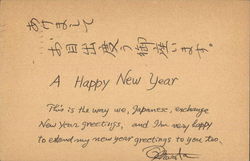 あけまして
お目出度う御座います。
A Happy New Year
This is the way we, Japanese, exchange
New Year greetings, and I'm very happy
to extend my new year greetings to you, too.